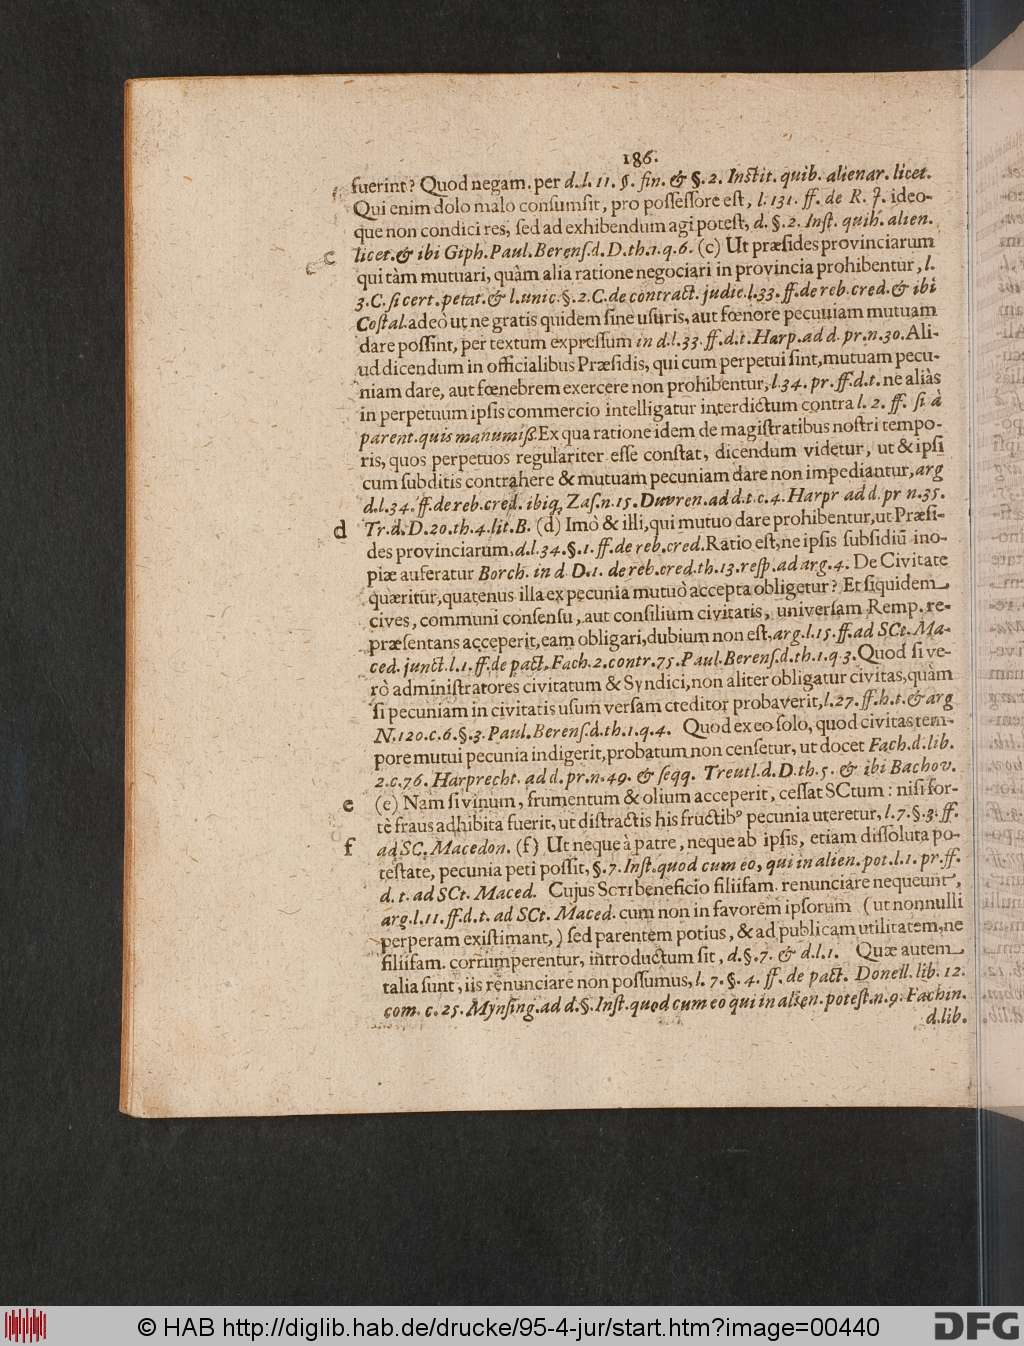 186.
fuerint? Quod negam. per d. l. 11. §. fin. & §. 2. Instit. quib. alienar. licet.
Qui enim dolo malo consumsit, pro possessore est, l. 131. ff. de R. J. ideo-
que non condici res, sed ad exhibendum agi potest, d. §. 2. Inst. quib. alien.
c licet. & ibi Giph. Paul. Berens. d. D. th. 1. q. 6. (c) Ut præsides provinciarum
qui tàm mutuari, quàm alia ratione negociari in provincia prohibentur, l.
3. C. si cert. petat. & l. unic. §. 2. C. de contract. judic. l. 33. ff. de reb. cred. & ibi
Costal. adeò ut ne gratis quidem sine usuris, aut fœnore pecuniam mutuam
dare possint, per textum expressum in d. l. 33. ff. d. t. Harp. ad d. pr. n. 30. Ali-
ud dicendum in officialibus Præsidis, qui cum perpetui sint, mutuam pecu-
niam dare, aut fœnebrem exercere non prohibentur, l. 34. pr. ff. d. t. ne aliàs
in perpetuum ipsis commercio intelligatur interdictum contra l. 2. ff. si à
parent. quis manumiss. Ex qua ratione idem de magistratibus nostri tempo-
ris, quos perpetuos regulariter esse constat, dicendum videtur, ut & ipsi
cum subditis contrahere & mutuam pecuniam dare non impediantur, arg
d. l. 34. ff. de reb. cred. ibiq; Zas. n. 15. Duvren. ad d. t. c. 4. Harpr ad d. pr n. 35.
d Tr. d. D. 20. th. 4. lit. B. (d) Imò & illi, qui mutuo dare prohibentur, ut Præsi-
des provinciarum, d. l. 34. §. 1. ff. de reb. cred. Ratio est, ne ipsis subsidiũ ino-
piæ auferatur Borch. in d D. 1. de reb. cred. th. 13. resp. ad arg. 4. De Civitate
quæritur, quatenus illa ex pecunia mutuò accepta obligetur? Et siquidem
cives, communi consensu, aut consilium civitatis, universam Remp. re-
præsentans acceperit, eam obligari, dubium non est, arg. l. 15. ff. ad SCt. Ma-
ced. junct. l. 1. ff. de pact. Fach. 2. contr. 75. Paul. Berens. d. th. 1. q 3. Quod si ve-
rò administratores civitatum & Syndici, non aliter obligatur civitas, quàm
si pecuniam in civitatis usum versam creditor probaverit, l. 27. ff. h. t. & arg
N. 120. c. 6. §. 3. Paul. Berens. d. th. 1. q. 4. Quod ex eo solo, quod civitas tem-
pore mutui pecunia indigerit, probatum non censetur, ut docet Fach. d. lib.
2. c. 76. Harprecht. ad d. pr. n. 49. & seqq. Treutl. d. D. th. 5. & ibi Bachov.
e (e) Nam si vinum, frumentum & olium acceperit, cessat SCtum: nisi for-
tè fraus adhibita fuerit, ut distractis his fructibꝰ pecunia uteretur, l. 7. §. 3. ff.
f ad SC. Macedon. (f) Ut neque à patre, neque ab ipsis, etiam dissoluta po-
testate, pecunia peti possit, §. 7. Inst. quod cum eo, qui in alien. pot. l. 1. pr. ff.
d. t. ad SCt. Maced. Cujus SCTI beneficio filiifam. renunciare nequeunt,
arg. l. 11. ff. d. t. ad SCt. Maced. cum non in favorem ipsorum (ut nonnulli
perperam existimant,) sed parentem potius, & ad publicam utilitatem, ne
filiifam. corrumperentur, introductum sit, d. §. 7. & d. l. 1. Quæ autem
talia sunt, iis renunciare non possumus, l. 7. §. 4. ff. de pact. Donell. lib. 12.
com. c. 25. Mynsing. ad d. §. Inst. quod cum eo qui in alien. potest. n. 9. Fachin.
d. lib.
© HAB http://diglib.hab.de/drucke/95-4-jur/start.htm?image=00440
DFG